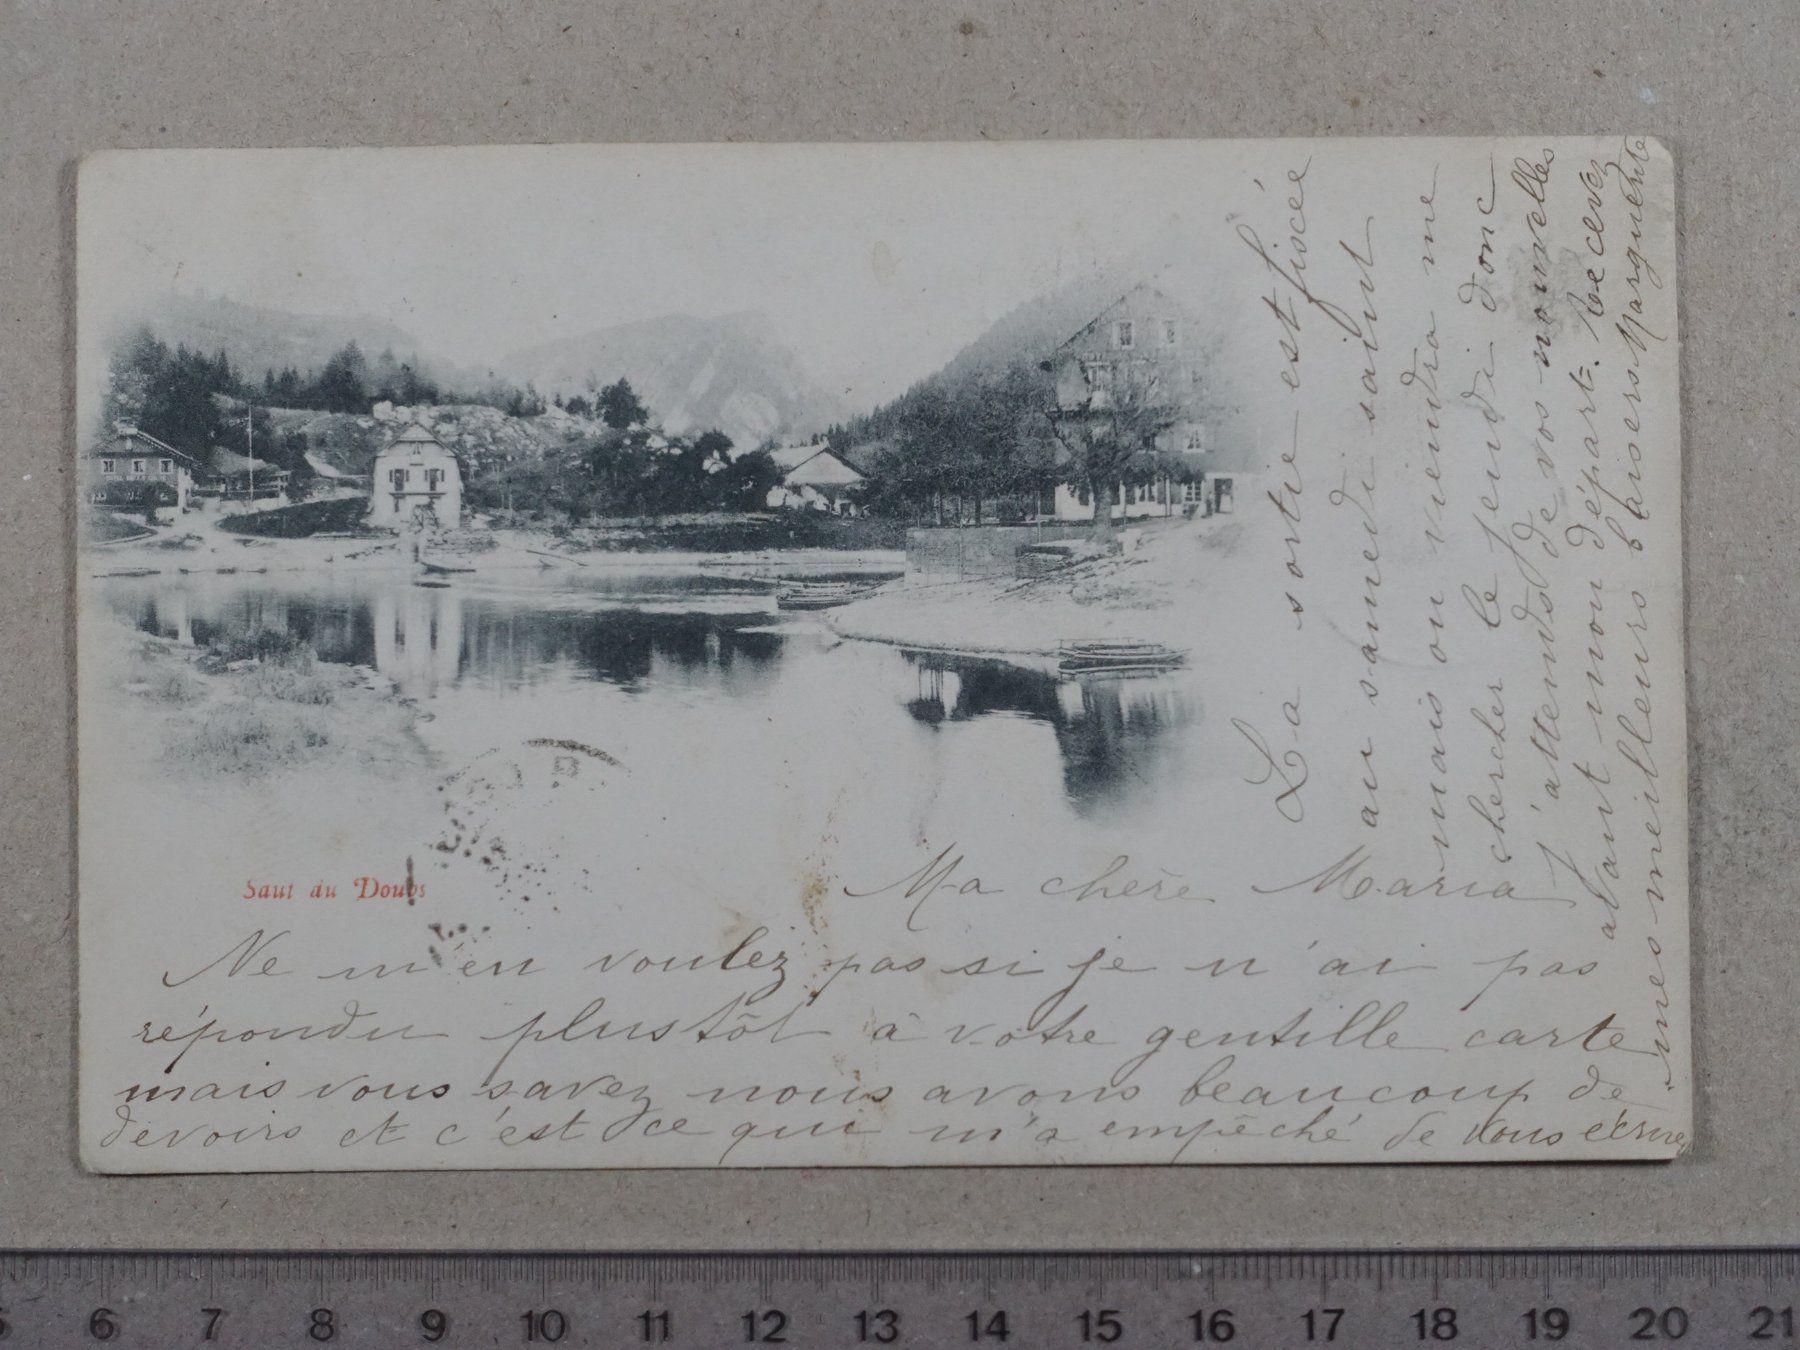 Saut du Doubs
Ma chère Maria
Ne m'en voulez pas si je n'ai pas
répondu plustôt à votre gentille carte
mais vous savez nous avons beaucoup de
devoirs et c'est ce qui m'a empêché de vous écrire
La sortie est fixcée
au samedi saint
mais on viendra me
chercher le jeudi donc
J'attends de vos nouvelles
avant mon départ. Recevez
mes meilleurs baisers Marguerite
5 6 7 8 9 10 11 12 13 14 15 16 17 18 19 20 21